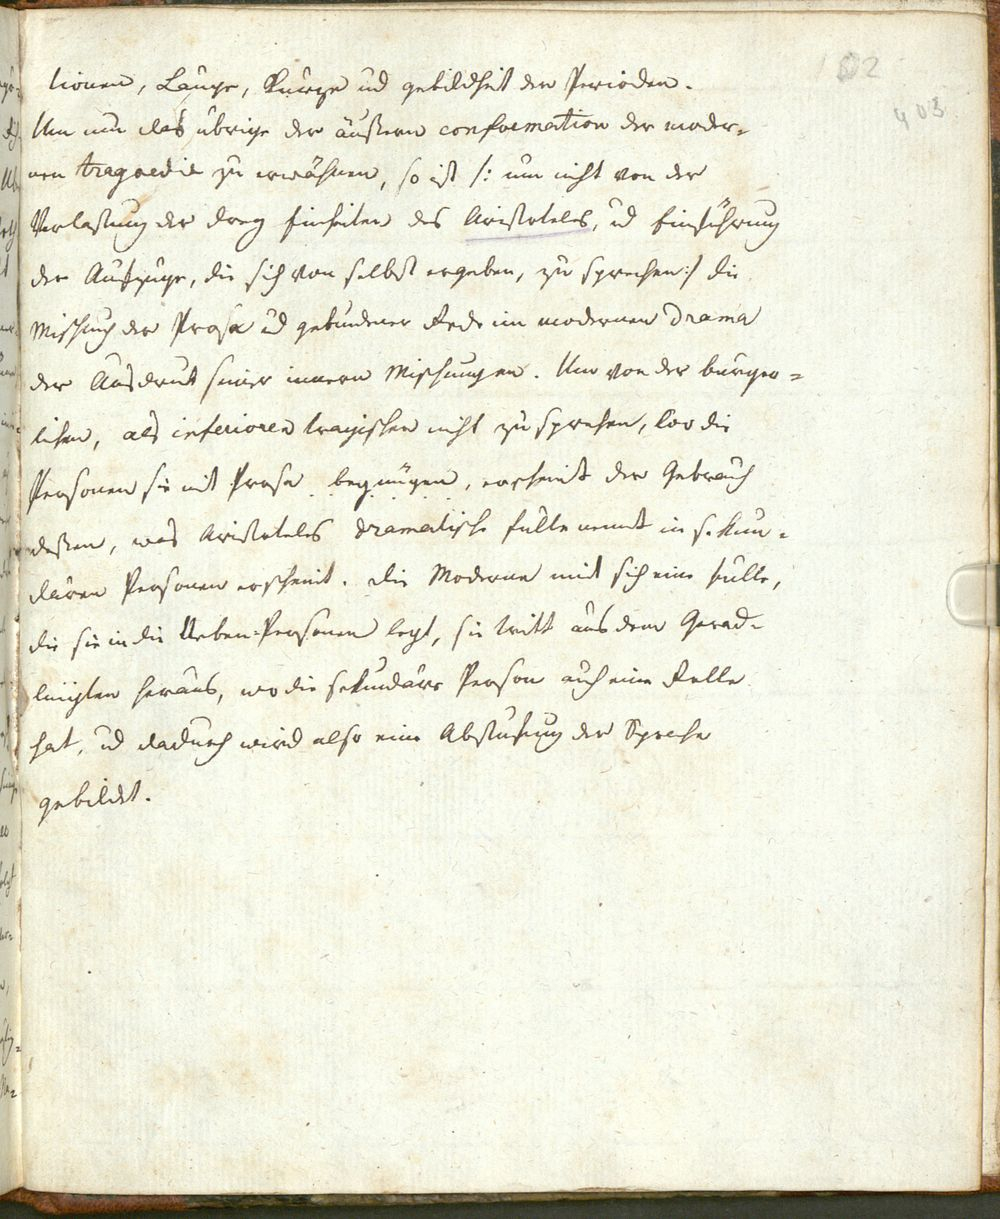 102
403
tionen, Länge, Kürze und gebildheit der Perioden.
Um nun das übrige der äußern conformation der moder-
nen tragoedie zu erwähnen, so ist /: um nicht von der
Verlassung der drey Einheiten des Aristoteles, und Einführung
der Aufzüge, die sich von selbst ergeben, zu sprechen :/ die
Mischung der Prosa und gebundener Rede im modernen Drama
der Ausdruck seiner innern Mischungen. Um von der bürger-
lichen, als inferioren tragischen nicht zu sprechen, wo die
Personen sich mit Prosa begnügen, erscheint der Gebrauch
dessen, was Aristoteles dramatische fülle nennt in sekun-
dären Personen erscheint. Die Moderne mit sich eine fülle,
die sie in die Neben-Personen legt, sie tritt aus dem Gerad-
linigten heraus, wo die sekundäre Person auch eine Rolle
hat, und dadurch wird also eine Abstufung der Sprache
gebildet.